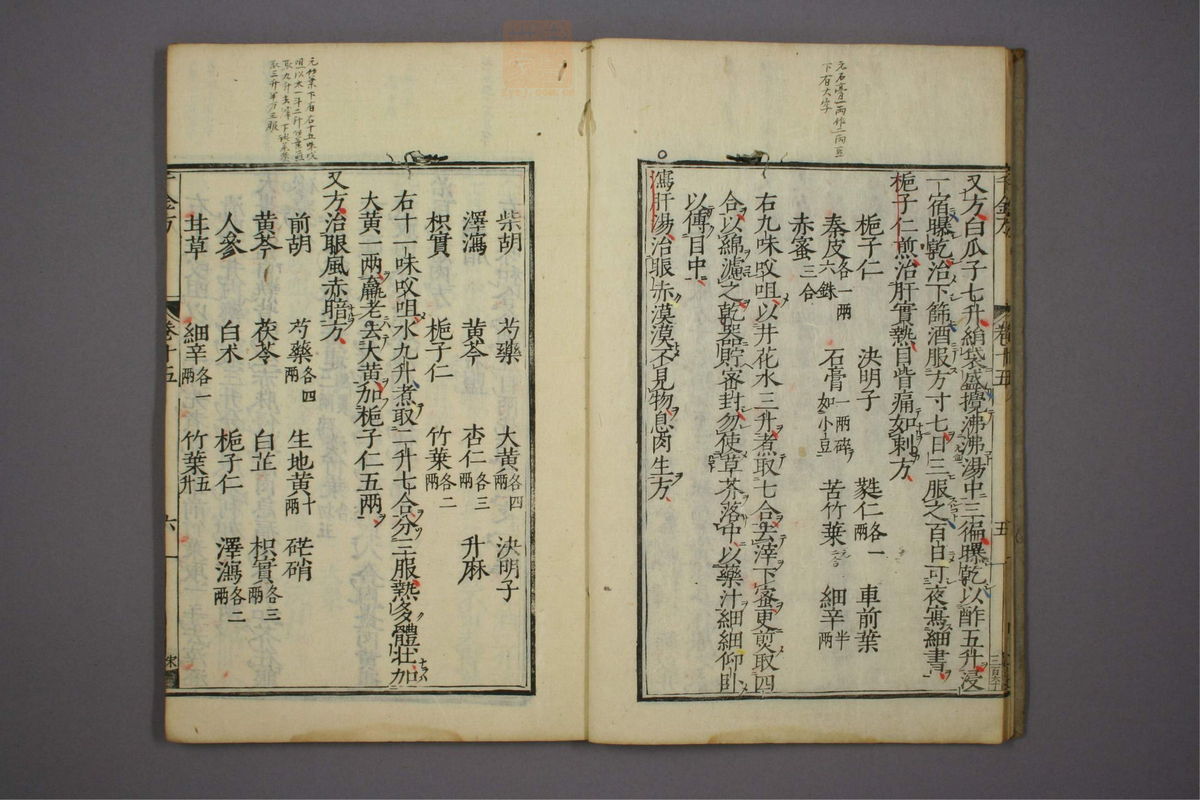 元石膏一兩作一兩五
下有大字
又方白瓜子七升絹袋盛攪沸沸湯中三徧曝乾以酢五升浸
一宿曝乾治下篩酒服方寸匕日三服之百日可夜寫細書
梔子仁煎治肝實熱目眥痛如刺方
梔子仁 決明子 蕤仁各一兩 車前葉
秦皮各一兩六銖 石膏一兩碎如小豆 苦竹葉二合 細辛半兩
赤蜜三合
右九味㕮咀以井花水三升煮取七合去滓下蜜更煎取四
合以綿濾之乾器貯密封勿使草芥落中以藥汁細細仰臥
以傅目中
瀉肝湯治眼赤漠漠不見物息肉生方
千金方 卷十五 五
柴胡 芍藥 大黃各四兩 決明子
澤瀉 黃芩 杏仁各三兩 升麻
枳實 梔子仁 竹葉各二兩
右十一味㕮咀水九升煮取二升七合分三服熱多體壯加
大黃一兩羸老去大黃加梔子仁五兩
又方治眼風赤暗方
前胡 芍藥各四兩 生地黃十兩 芒硝
黃芩 茯苓 白芷 枳實各三兩
人參 白朮 梔子仁 澤瀉各二兩
甘草 細辛各一兩 竹葉五升
千金方 卷十五 六